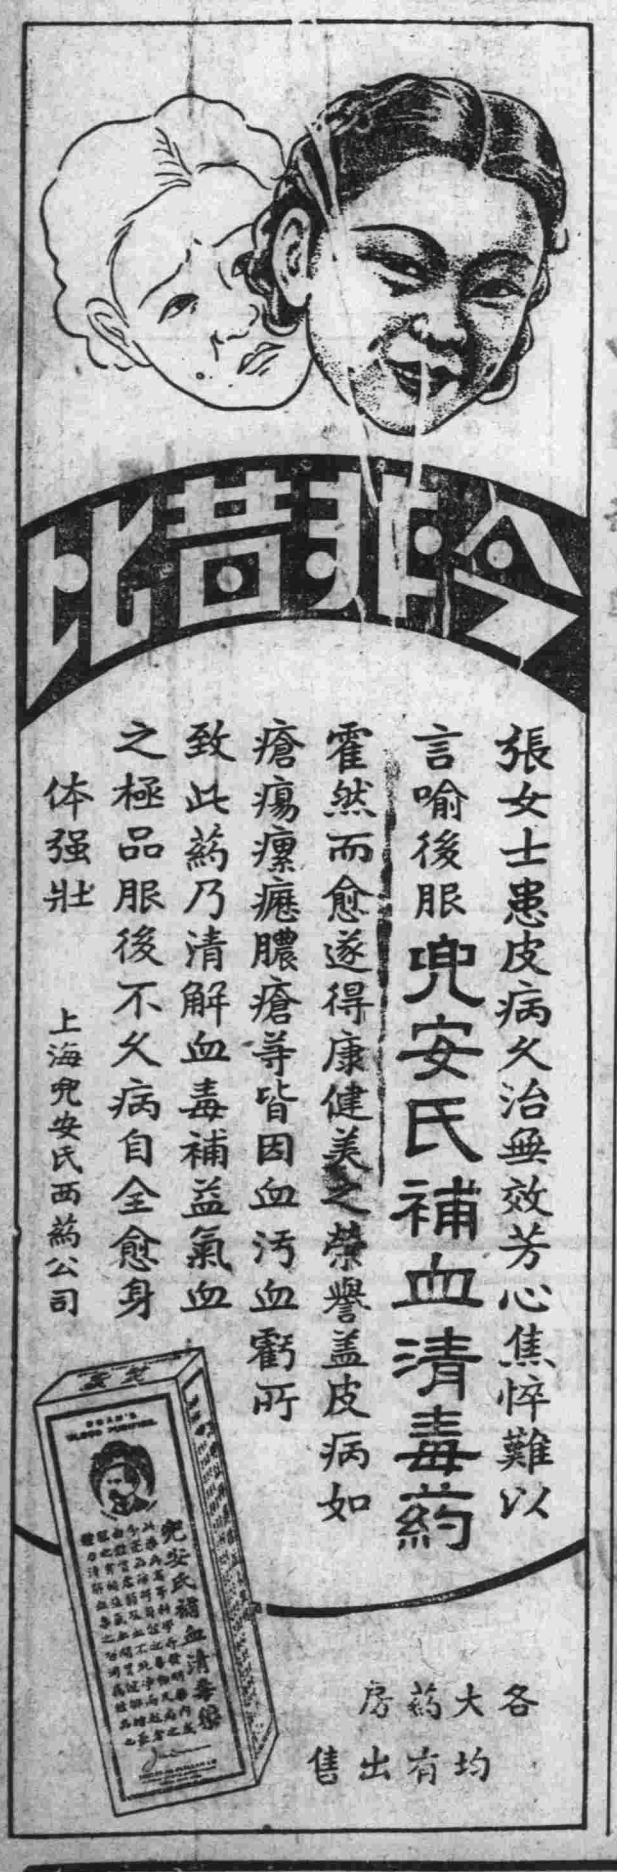 今非昔比
張女士患皮病久治無效芳心焦悴難以
言喻後服兜安氏補血清毒药
霍然而愈遂得康健美之榮譽盖皮病如
瘡瘍瘰癧膿瘡等皆因血汚血虧所
致此药乃清解血毒補益氣血
之極品服後不久病自全愈身
体强壯
上海兜安氏西药公司
DOAN'S
BLOOD PURIFIER
兜安氏補血清毒
各大药房
均有出售